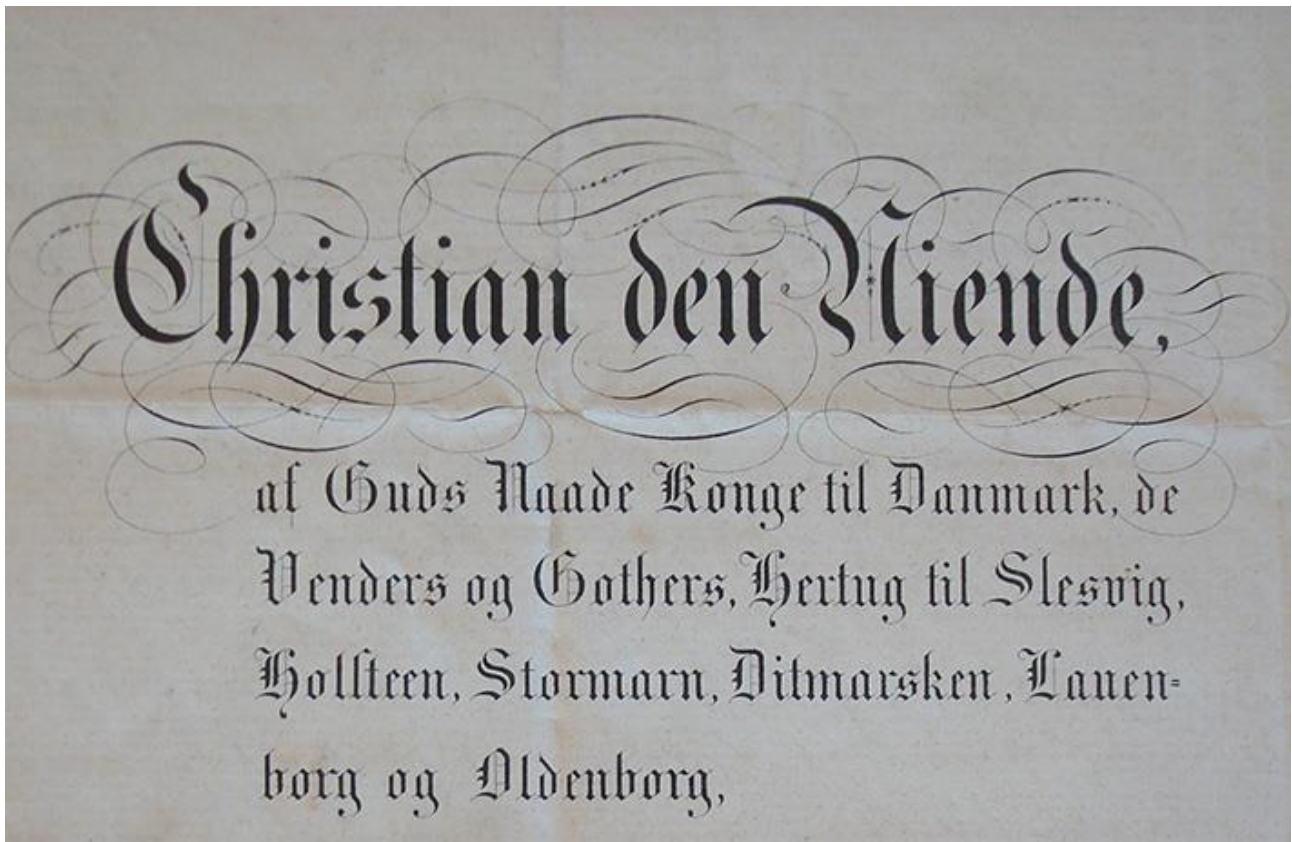 Christian den Niende,
af Guds Naade Konge til Danmark, de
Venders og Gothers, Hertug til Slesvig,
Holsteen, Stormarn, Ditmarsken, Lauen=
borg og Oldenborg,